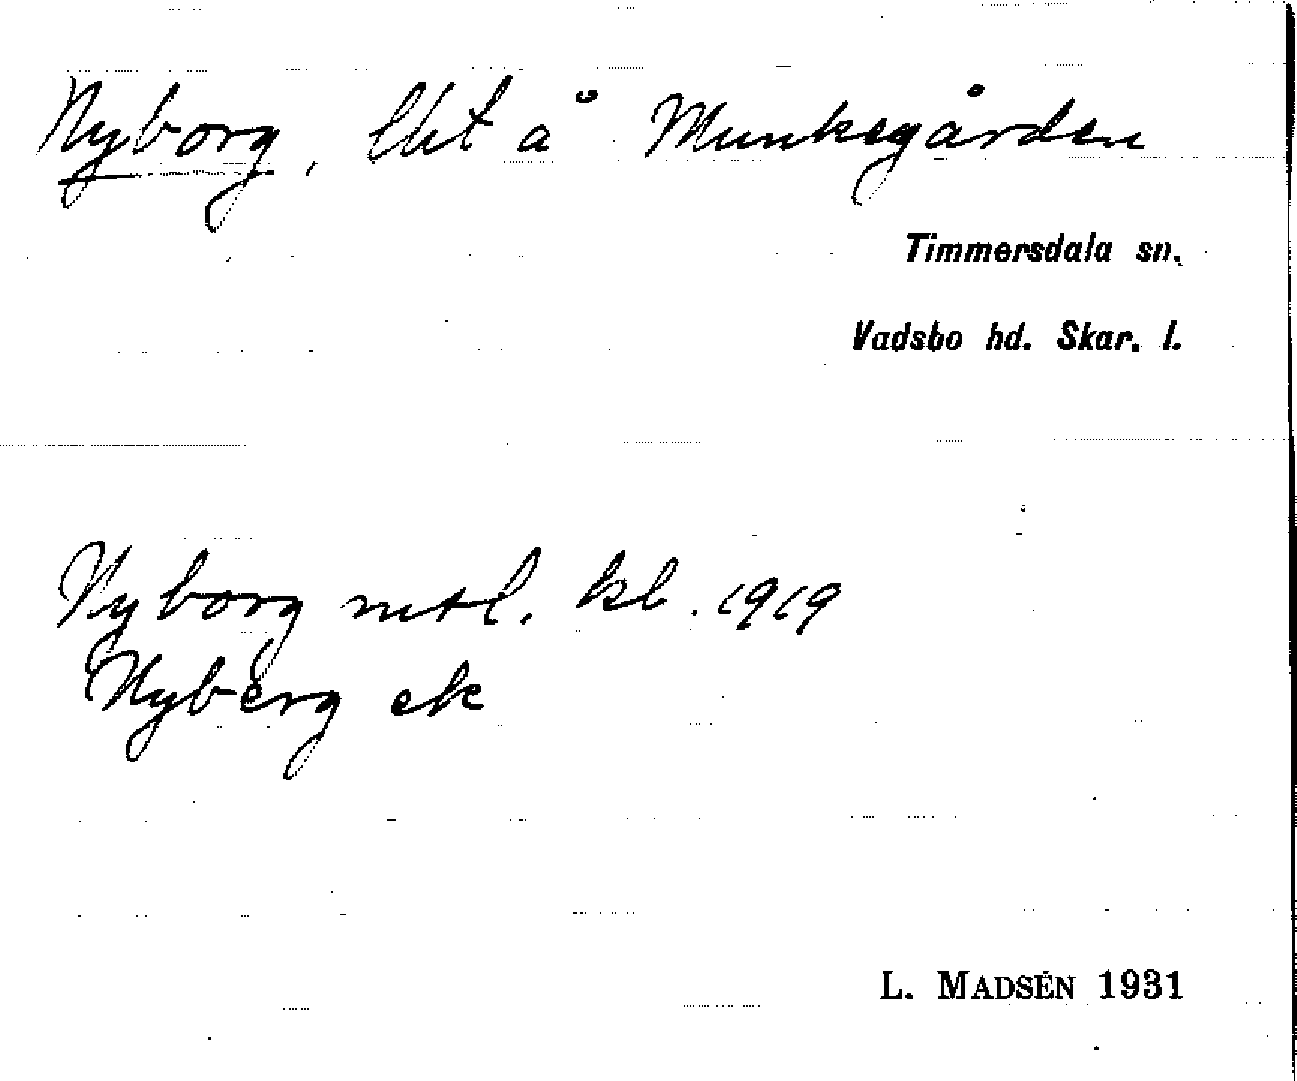 Nyborg, lht å Munkegården
Timmersdala sn.
Vadsbo hd. Skar. l.
Nyborg mtl. kl. 1919
Nyberg ek
L. MADSÉN 1931